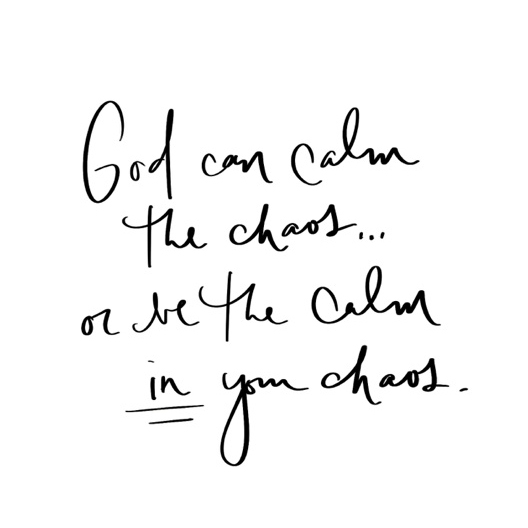 God can calm
the chaos...
or be the calm
in your chaos.